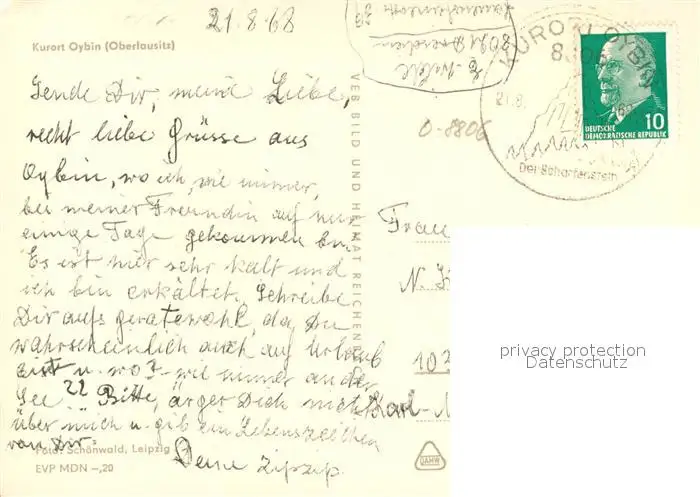 21.8.68
Kurort Oybin (Oberlausitz)
Sende Dir, meine Liebe,
recht liebe Grüsse aus
Oybin, wo ich, wie immer,
bei meiner Freundin auf nur
einige Tage gekommen bin.
Es ist hier sehr kalt und
ich bin erkältet. Schreibe
Dir aufs geratewohl, da Du
wahrscheinlich auch auf Urlaub
bist u. wo? - wie immer an der
See ?? Bitte, ärger Dich nicht
über mich u. gib ein Lebenszeichen
von Dir.
Deine Zipzip.
Foto: Schönwald, Leipzig
EVP MDN -,20
VEB BILD UND HEIMAT REICHEN
8021 Dresden
0-8806
KURORT OYBIN
8806
21.8.
Der Scharfenstein
10
DEUTSCHE
DEMOKRATISCHE REPUBLIK
Frau
N.
102
Karl-
privacy protection
Datenschutz